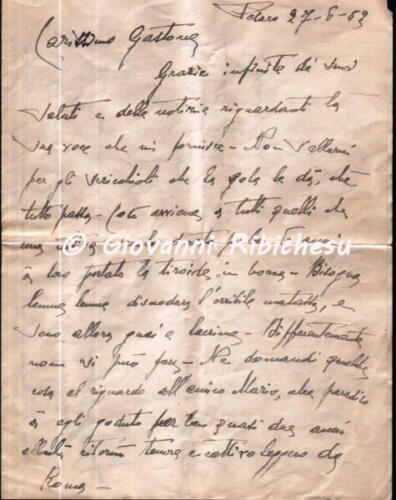 Pesaro 27-6-52
Carissimo Gastone
Grazie infinite dei suoi
saluti e delle notizie riguardanti la
sua voce che mi fornisce - Non s'allarmi
per gli che la gola le dà, chè
tutto passa - Così avviene a tutti quelli che
una
© Giovanni Ribichesu
a loro portato la tiroide in bocca - Bisogna
lemme lemme disnodare l'orribile matassa, e
sono allora guai e lacrime - Differentemente
non si può fare - Ne domandi qualche
cosa al riguardo all'amico Mario, che
à egli goduto per ben quasi due anni
ritornò tenore e leggero da
Roma -